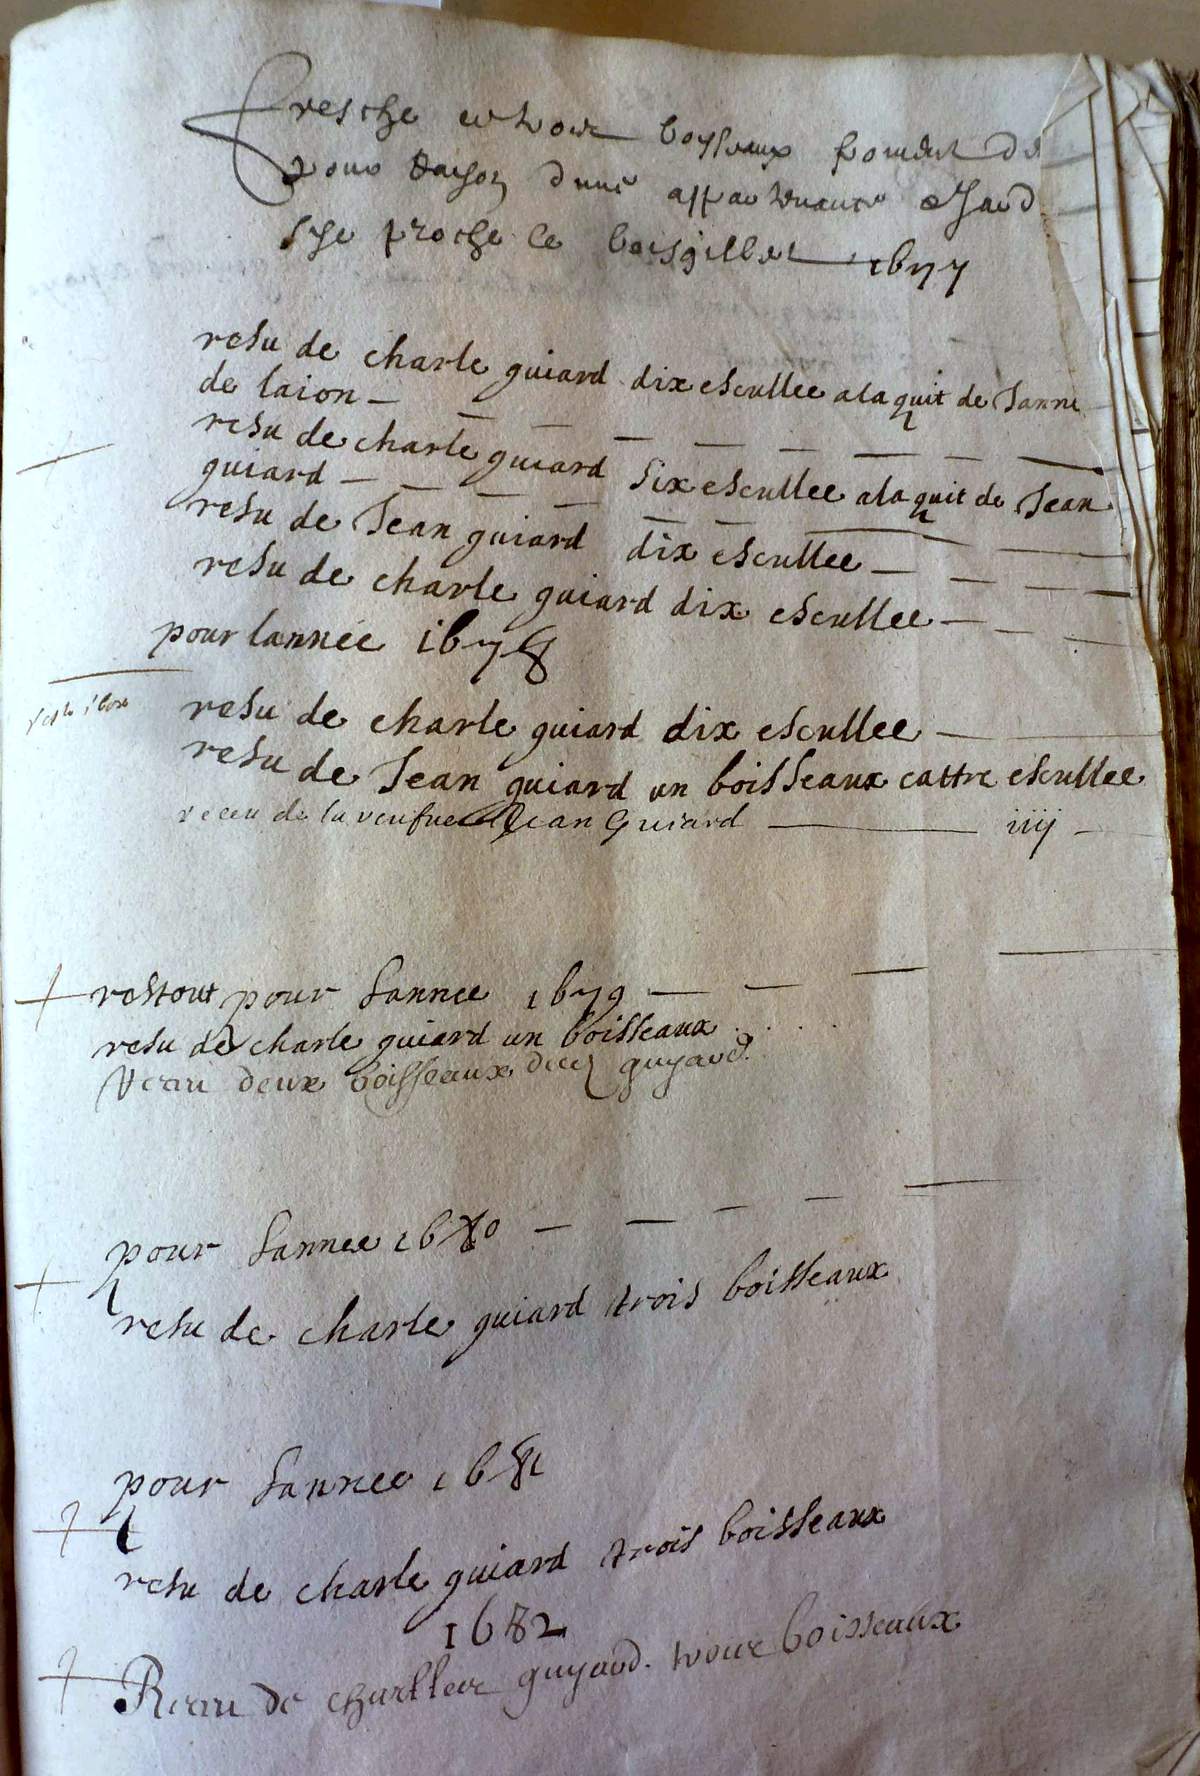 fresche en trois boysseaux froment de
pour raison d'une appartenance
size proche le boisgillet 1677
resu de charle guiard dix escullee alaquit de Janne
de laion
resu de charle guiard six escullee alaquit de Jean
guiard
resu de Jean guiard dix escullee
resu de charle guiard dix escullee
pour lannee 1678
resu de charle guiard dix escullee
resu de Jean guiard un boisseaux cattre escullee
receu de la veufue Jean Guiard iiij
restout pour Lannee 1679
resu de charle guiard un boisseaux
Receu deux boisseaux guyard
pour Lannee 1680
resu de charle guiard trois boisseaux
pour Lannee 1681
resu de charle guiard trois boisseaux
1682
Receu de guyard trois boisseaux